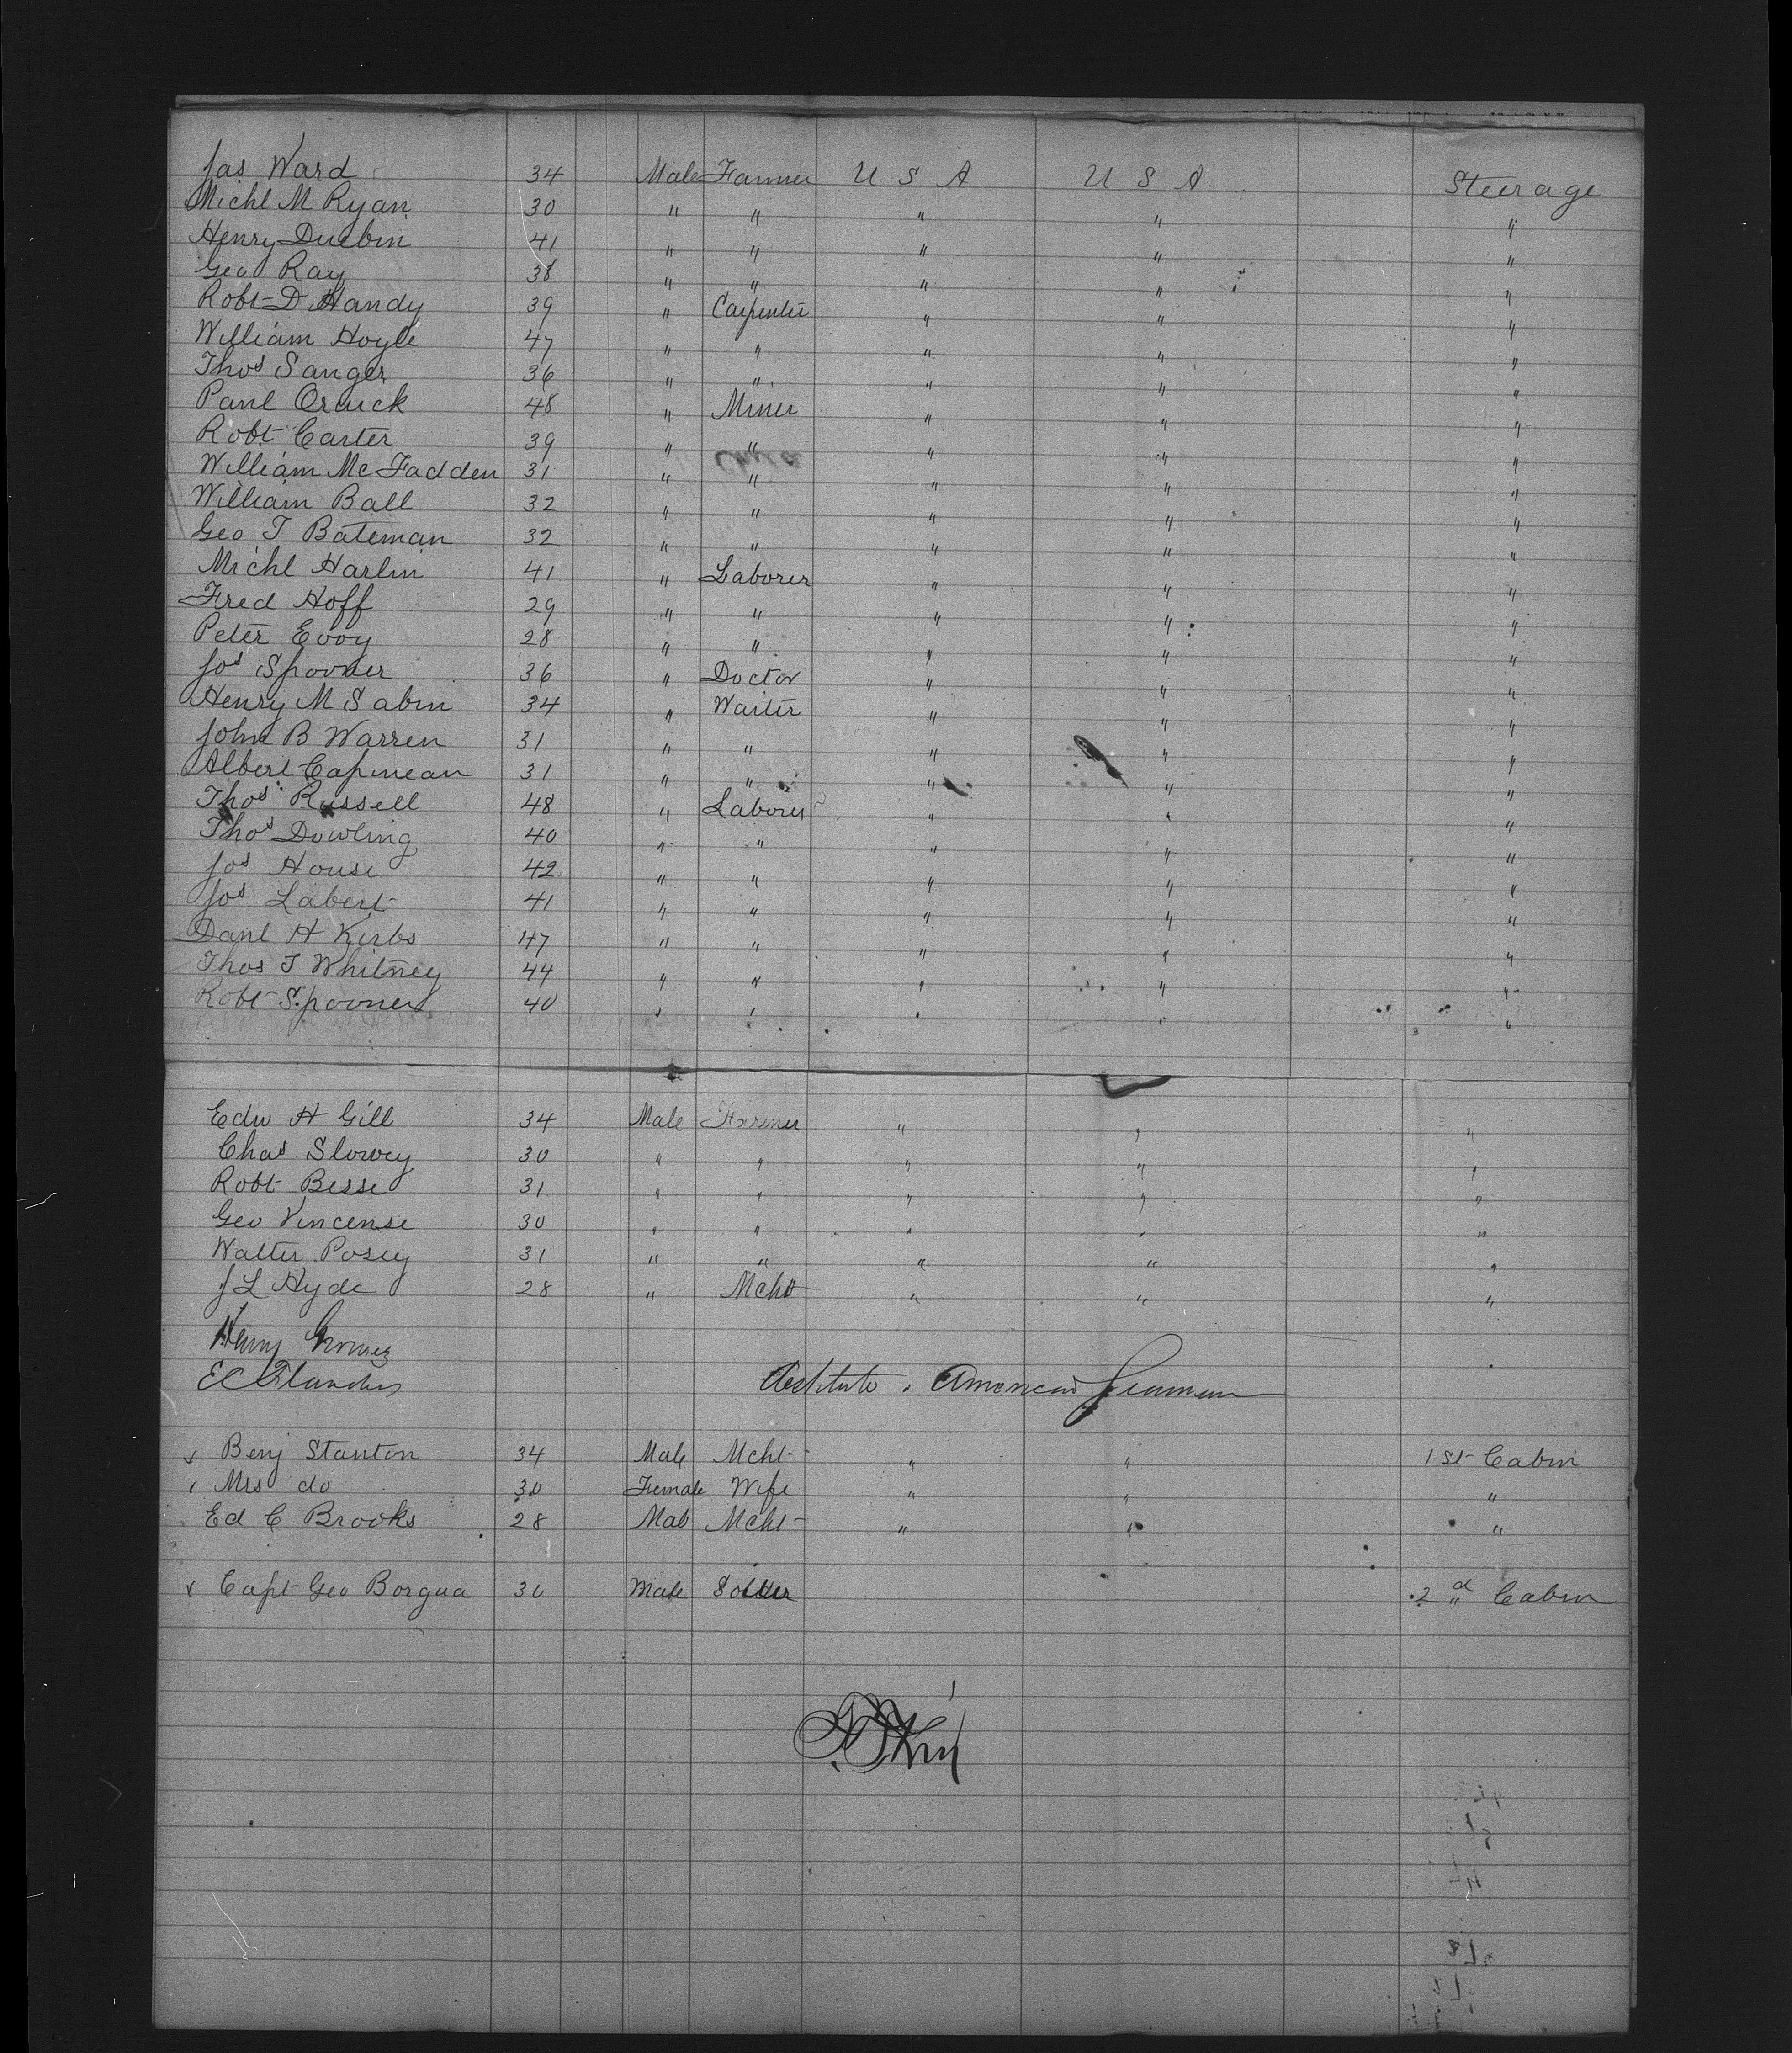 Jas Ward 34 Male Farmer U S A U S A Steerage
Michl M Ryan 30 " " " " "
Henry Durbin 41 " " " " "
Geo Ray 38 " " " " "
Robt D Handy 39 " Carpenter " " "
William Hoyle 47 " " " " "
Thos Sanger 36 " " " " "
Paul 48 " Miner " " "
Robt Carter 39 " " " " "
William McFadden 31 " " " " "
William Ball 32 " " " " "
Geo T Bateman 32 " " " " "
Michl Harlin 41 " Laborer " " "
Fred Hoff 29 " " " " "
Peter Evoy 28 " " " " "
Jos Spooner 36 " Doctor " " "
Henry M Sabin 34 " Waiter " " "
John B Warren 31 " " " " "
Albert Capinean 31 " " " " "
Thos Russell 48 " Laborer " " "
Thos Dowling 40 " " " " "
Jos House 42 " " " " "
Jos Labert 41 " " " " "
Danl H Kirbs 47 " " " " "
Thos T Whitney 44 " " " " "
Robt Spooner 40 " " " " "
Edw H Gill 34 Male Farmer " " "
Chas Slowey 30 " " " " "
Robt Besse 31 " " " " "
Geo Vincense 30 " " " " "
Walter Posey 31 " " " " "
J L Hyde 28 " Mcht " " "
Henry
E C Flanders Destitute American Seamen
Benj Stanton 34 Male Mcht " " 1st Cabin
Mrs do 30 Female Wife " " "
Ed C Brooks 28 Male Mcht " " "
Capt Geo Borgua 30 Male 2d Cabin